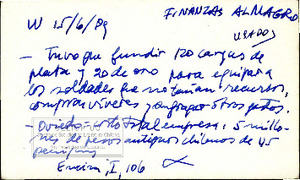 W 15/6/89
FINANZAS ALMAGRO
USADOS
— Tuvo que fundir 120 cargas de
plata y 20 de oro para equipar a
los soldados que no tenían recursos,
comprar víveres y sufragar otros gastos.
Oviedo = costo total empresa: 5 millo-
nes de pesos antiguos chilenos de 45
peniques
Encina, I, 106